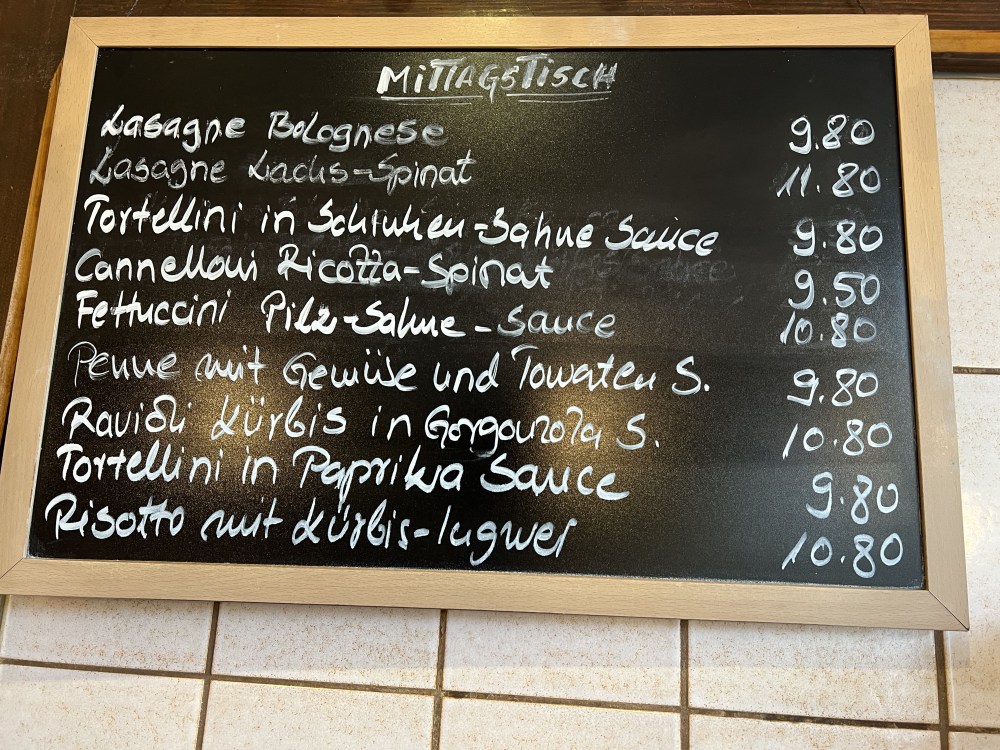 MITTAGSTISCH
Lasagne Bolognese 9.80
Lasagne Lachs-Spinat 11.80
Tortellini in Schinken-Sahne Sauce 9.80
Cannelloni Ricotta-Spinat 9.50
Fettuccini Pilz-Sahne-Sauce 10.80
Penne mit Gemüse und Tomaten S. 9.80
Ravioli Kürbis in Gorgonzola S. 10.80
Tortellini in Paprika Sauce 9.80
Risotto mit Kürbis-Ingwer 10.80